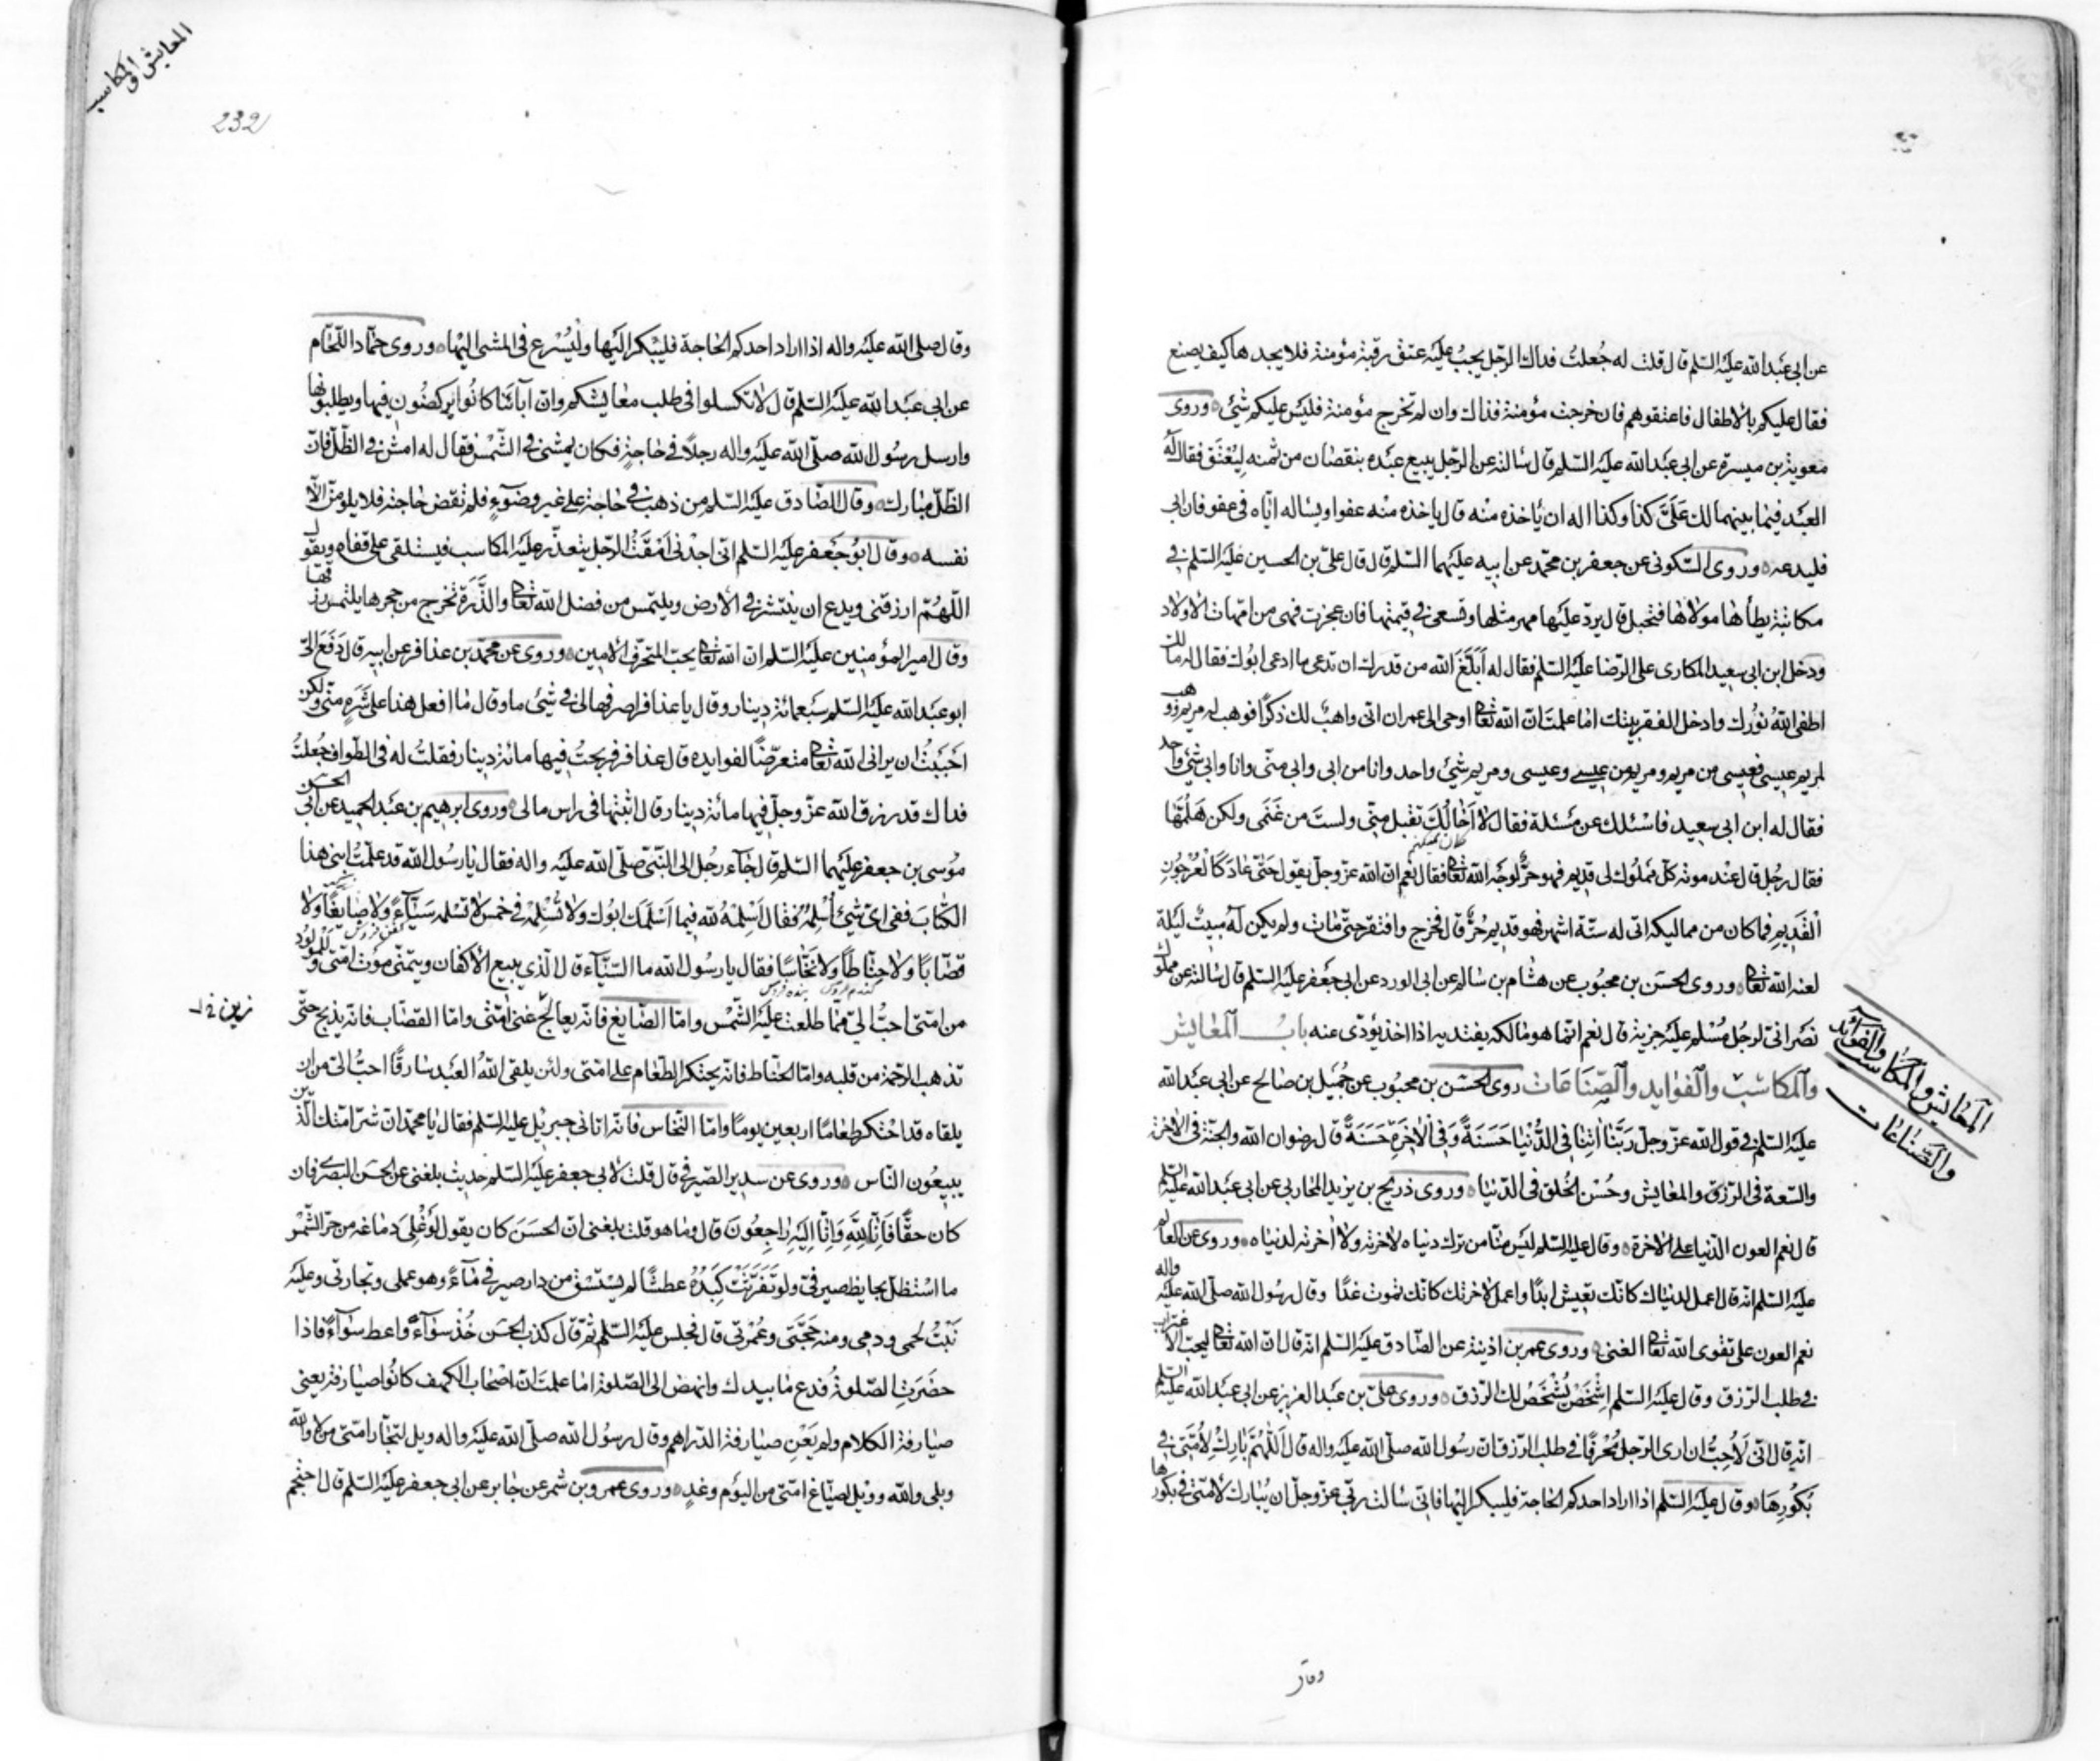 عن ابی عبدالله علیه السلم قال قلت له جعلت فداك الرجل یجب علیه عتق رقبة مؤمنة فلا یجدها کیف یصنع
فقال علیکم بالاطفال فاعتقوهم فان خرجت مؤمنة فذاك وان لم تخرج مؤمنة فلیس علیکم شئ وروی
معویة بن میسرة عن ابی عبدالله علیه السلم قال سالته عن الرجل یبیع عبده بنقصان من ثمنه لیعتق فقال له
العبد فیما بینهما لك علیّ کذا وکذا اله ان یاخذه منه قال یاخذه منه عفوا ویساله ایاه فی عفو فان ابی
فلیدعه وروی السکونی عن جعفر بن محمد عن ابیه علیهما السلم قال قال علی بن الحسین علیه السلم فی
مکاتبة یطأها مولاها فتحبل قال یرد علیها مهر مثلها وتسعی فی قیمتها فان عجزت فهی من امهات الاولاد
ودخل ابن ابی سعید المکاری علی الرضا علیه السلم فقال له أبلغ الله من قدرك ان تدعی ما ادعی ابوك فقال له مالك
اطفی الله نورك وادخل الفقر بیتك اما علمت ان الله تعالی اوحی الی عمران انی واهب لك ذکرا فوهب له مریم ووهب
لمریم عیسی فعیسی من مریم ومریم من عیسی وعیسی ومریم شئ واحد وانا من ابی وابی منی وانا وابی شئ واحد
فقال له ابن ابی سعید فاسئلك عن مسئلة فقال لا اخالك تقبل منی ولست من غنمی ولکن هلمّها
فقال رجل قال عند موته کل مملوك لی قدیم فهو حرّ لوجه الله تعالی فقال نعم ان الله عز وجل یقول حتی عاد کالعرجون
القدیم فما کان من ممالیکه اتی له ستة اشهر فهو قدیم حرّ قال فخرج وافتقر حتی مات ولم یکن له مبیت لیلة
لعنه الله تعالی وروی الحسن بن محبوب عن هشام بن سالم عن ابی الورد عن ابی جعفر علیه السلم قال سالته عن مملوك
نصرانی لرجل مسلم علیه جزیة قال نعم انما هو مالکه یفتدیه اذا اخذ یؤدی عنه باب المعایش
والمکاسب والفواید والصناعات روی الحسن بن محبوب عن جمیل بن صالح عن ابی عبدالله
علیه السلم فی قول الله عز وجل ربنا اتنا فی الدنیا حسنة وفی الاخرة حسنة قال رضوان الله والجنة فی الاخرة
والسعة فی الرزق والمعایش وحسن الخلق فی الدنیا وروی ذریح بن یزید المحاربی عن ابی عبدالله علیه السلم
قال نعم العون الدنیا علی الاخرة وقال علیه السلم لیس منا من ترك دنیاه لاخرته ولا اخرته لدنیاه وروی عن العالم
علیه السلم انه قال اعمل لدنیاك کانك تعیش ابدا واعمل لاخرتك کانك تموت غدا وقال رسول الله صلی الله علیه واله
نعم العون علی تقوی الله تعالی الغنی وروی عمر بن اذینة عن الصادق علیه السلم انه قال ان الله تعالی لیحب الاغتراب
فی طلب الرزق وقال علیه السلم اشخص یشخص لك الرزق وروی علی بن عبد العزیز عن ابی عبدالله علیه السلم
انه قال انی لاحب ان اری الرجل متحرفا فی طلب الرزق ان رسول الله صلی الله علیه واله قال اللهم بارك لامتی فی
بکورها وقال علیه السلم اذا اراد احدکم الحاجة فلیبکر الیها فانی سالت ربی عز وجل ان یبارك لامتی فی بکورها
المعایش والمکاسب والفوائد
والصناعات
وقال
المعایش والمکاسب
232
وقال صلی الله علیه واله اذا اراد احدکم الحاجة فلیبکر الیها ولیسرع فی المشی الیها وروی حماد اللحام
عن ابی عبدالله علیه السلم قال لا تکسلوا فی طلب معایشکم وان آبائنا کانوا یرکضون فیها ویطلبونها
وارسل رسول الله صلی الله علیه واله رجلا فی حاجة فکان یمشی فی الشمس فقال له امش فی الظل فان
الظل مبارك وقال الصادق علیه السلم من ذهب فی حاجة علی غیر وضوء فلم تقض حاجته فلا یلومن الا
نفسه وقال ابو جعفر علیه السلم انی اجدنی امقت الرجل یتعذر علیه المکاسب فیستلقی علی قفاه ویقول
اللهم ارزقنی ویدع ان ینتشر فی الارض ویلتمس من فضل الله تعالی والذرة تخرج من جحرها یلتمس رزقها
وقال امیر المؤمنین علیه السلم ان الله تعالی یحب المتحرف الامین وروی عن محمد بن عذافر عن ابیه قال دفع الیّ
ابو عبدالله علیه السلم سبعمائة دینار وقال یا عذافر اصرفها لی فی شئ ما وقال ما افعل هذا علی شره منی ولکن
احببت ان یرانی الله تعالی متعرضا لفوایده قال عذافر فربحت فیها مائة دینار فقلت له فی الطواف جعلت
فداك قد رزق الله عز وجل فیها مائة دینار قال اثبتها فی راس مالی وروی ابرهیم بن عبد الحمید عن ابی الحسن
موسی بن جعفر علیهما السلم قال جاء رجل الی النبی صلی الله علیه واله فقال یا رسول الله قد علمت ابنی هذا
الکتاب ففی ای شئ اسلمه فقال اسلمه لله فیما اسلمك ابوك ولا تسلمه فی خمس لا تسلمه سیّاء ولا صایغا ولا
قصابا ولا حناطا ولا نخاسا فقال یا رسول الله ما السیّاء قال الذی یبیع الاکفان ویتمنی موت امتی وللمولود
من امتی احب الیّ مما طلعت علیه الشمس واما الصایغ فانه یعالج غنی امتی واما القصاب فانه یذبح حتی
تذهب الرحمة من قلبه واما الحناط فانه یحتکر الطعام علی امتی ولئن یلقی الله العبد سارقا احب الیّ من ان
یلقاه قد احتکر طعاما اربعین یوما واما النخاس فانه اتانی جبرئیل علیه السلم فقال یا محمد ان شر امتك الذین
یبیعون الناس وروی عن سدیر الصیرفی قال قلت لابی جعفر علیه السلم حدیث بلغنی عن الحسن البصری فان
کان حقا فانا لله وانا الیه راجعون قال وما هو قلت بلغنی ان الحسن کان یقول لو غلی دماغه من حر الشمس
ما استظل بحایط صیرفی ولو تفرثت کبده عطشا لم یستسق من دار صیرفی ماء وهو عملی وتجارتی وعلیه
نبت لحمی ودمی ومنه حجتی وعمرتی قال فجلس علیه السلم ثم قال کذب الحسن خذ سواء واعط سواء فاذا
حضرت الصلوة فدع ما بیدك وانهض الی الصلوة اما علمت ان اصحاب الکهف کانوا صیارفة یعنی
صیارفة الکلام ولم یعن صیارفة الدراهم وقال رسول الله صلی الله علیه واله ویل لتجار امتی من لا والله
وبلی والله وویل لصیاغ امتی من الیوم وغد وروی عمرو بن شمر عن جابر عن ابی جعفر علیه السلم قال احتجم